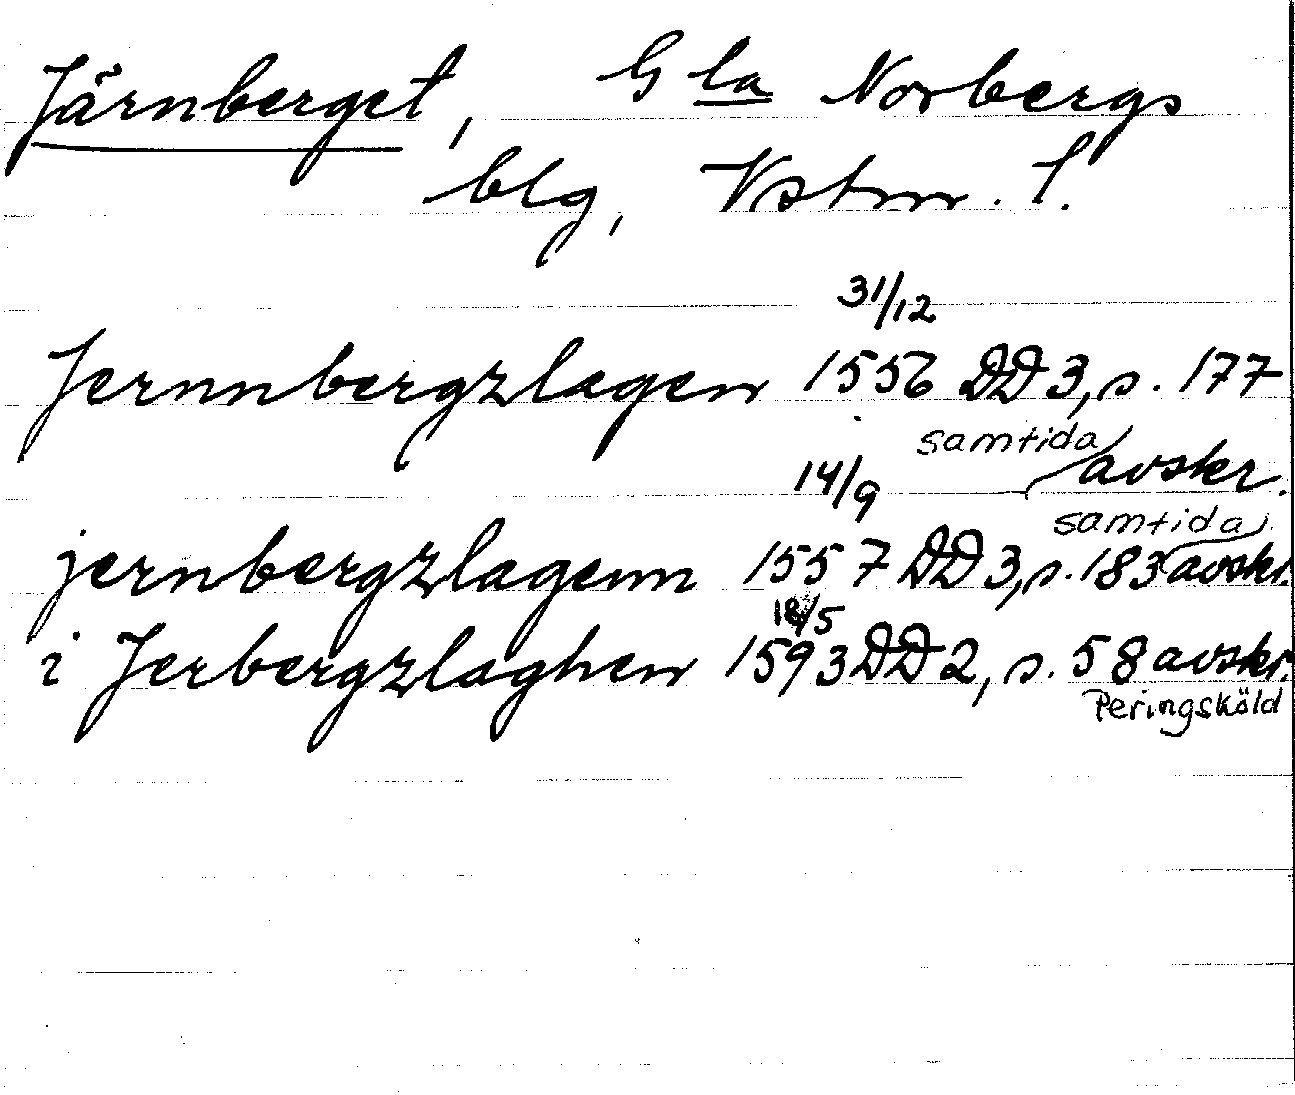 Järnberget, Gla Norbergs
blg, Vstm. l.
31/12
Jernnbergzlagen 1556 DD 3, s. 177
samtida avskr.
14/9
samtida
jernbergzlagenn 1557 DD 3, s. 183 avskr.
18/5
i Jerbergzlaghen 1593 DD 2, s. 58 avskr.
Peringsköld